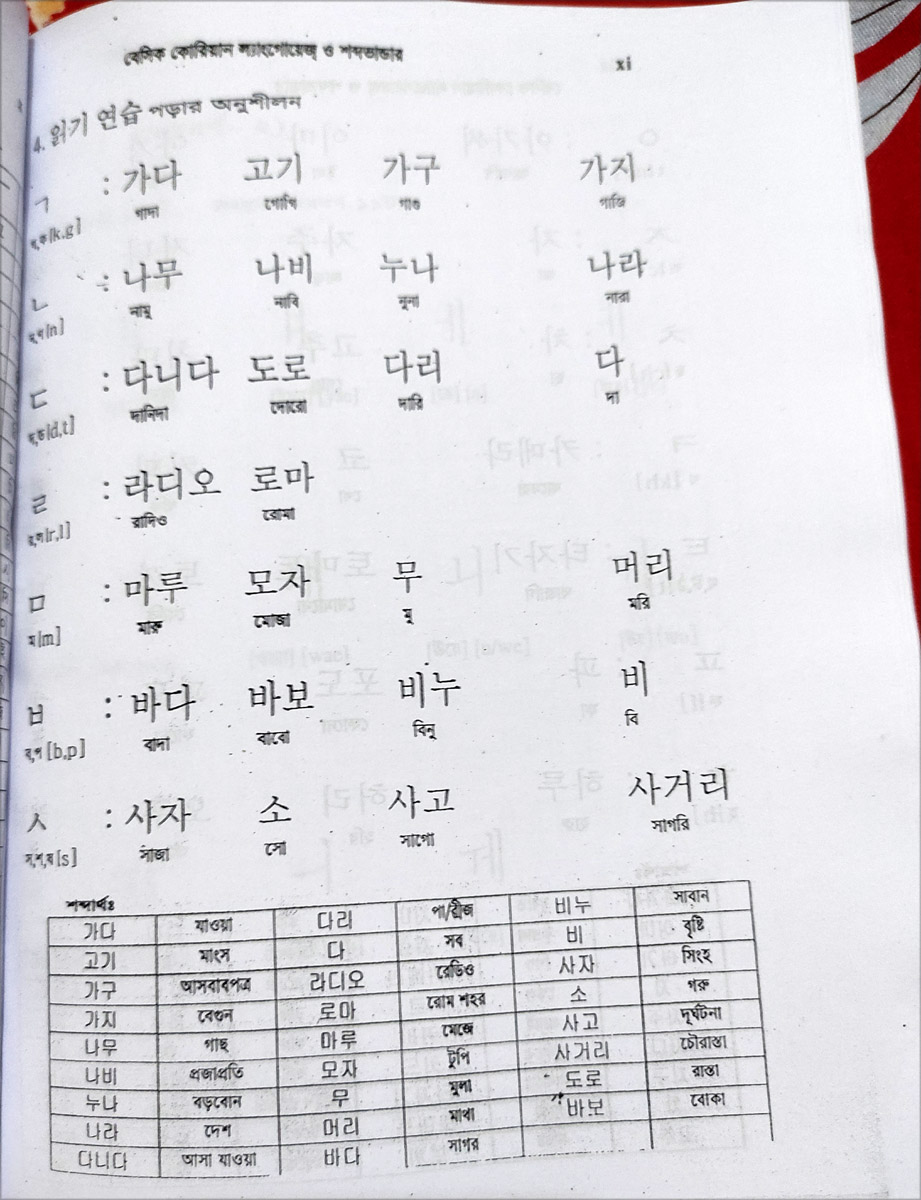 বেসিক কোরিয়ান ল্যাংগোয়েজ ও শব্দভান্ডার xi
4. 읽기 연습 পড়ার অনুশীলন
ㄱ : 가다 고기 가구 가지
গাদা গোগি গাগু গাজি
[k,g]
ㄴ : 나무 나비 누나 나라
নামু নাবি নুনা নারা
[n]
ㄷ : 다니다 도로 다리 다
দানিদা দোরো দারি দা
[d,t]
ㄹ : 라디오 로마
রাদিও রোমা
র,ল[r,l]
ㅁ : 마루 모자 무 머리
মারু মোজা মু মরি
ম[m]
ㅂ : 바다 바보 비누 비
বাদা বাবো বিনু বি
ব,প [b,p]
ㅅ : 사자 소 사고 사거리
সাজা সো সাগো সাগরি
স,শ,ষ[s]
শব্দার্থঃ
가다 যাওয়া 다리 পা/ব্রীজ 비누 সাবান
고기 মাংস 다 সব 비 বৃষ্টি
가구 আসবাবপত্র 라디오 রেডিও 사자 সিংহ
가지 বেগুন 로마 রোম শহর 소 গরু
나무 গাছ 마루 মেঝে 사고 দূর্ঘটনা
나비 প্রজাপ্রতি 모자 টুপি 사거리 চৌরাস্তা
누나 বড়বোন 무 মুলা 도로 রাস্তা
나라 দেশ 머리 মাথা 바보 বোকা
다니다 আসা যাওয়া 바다 সাগর